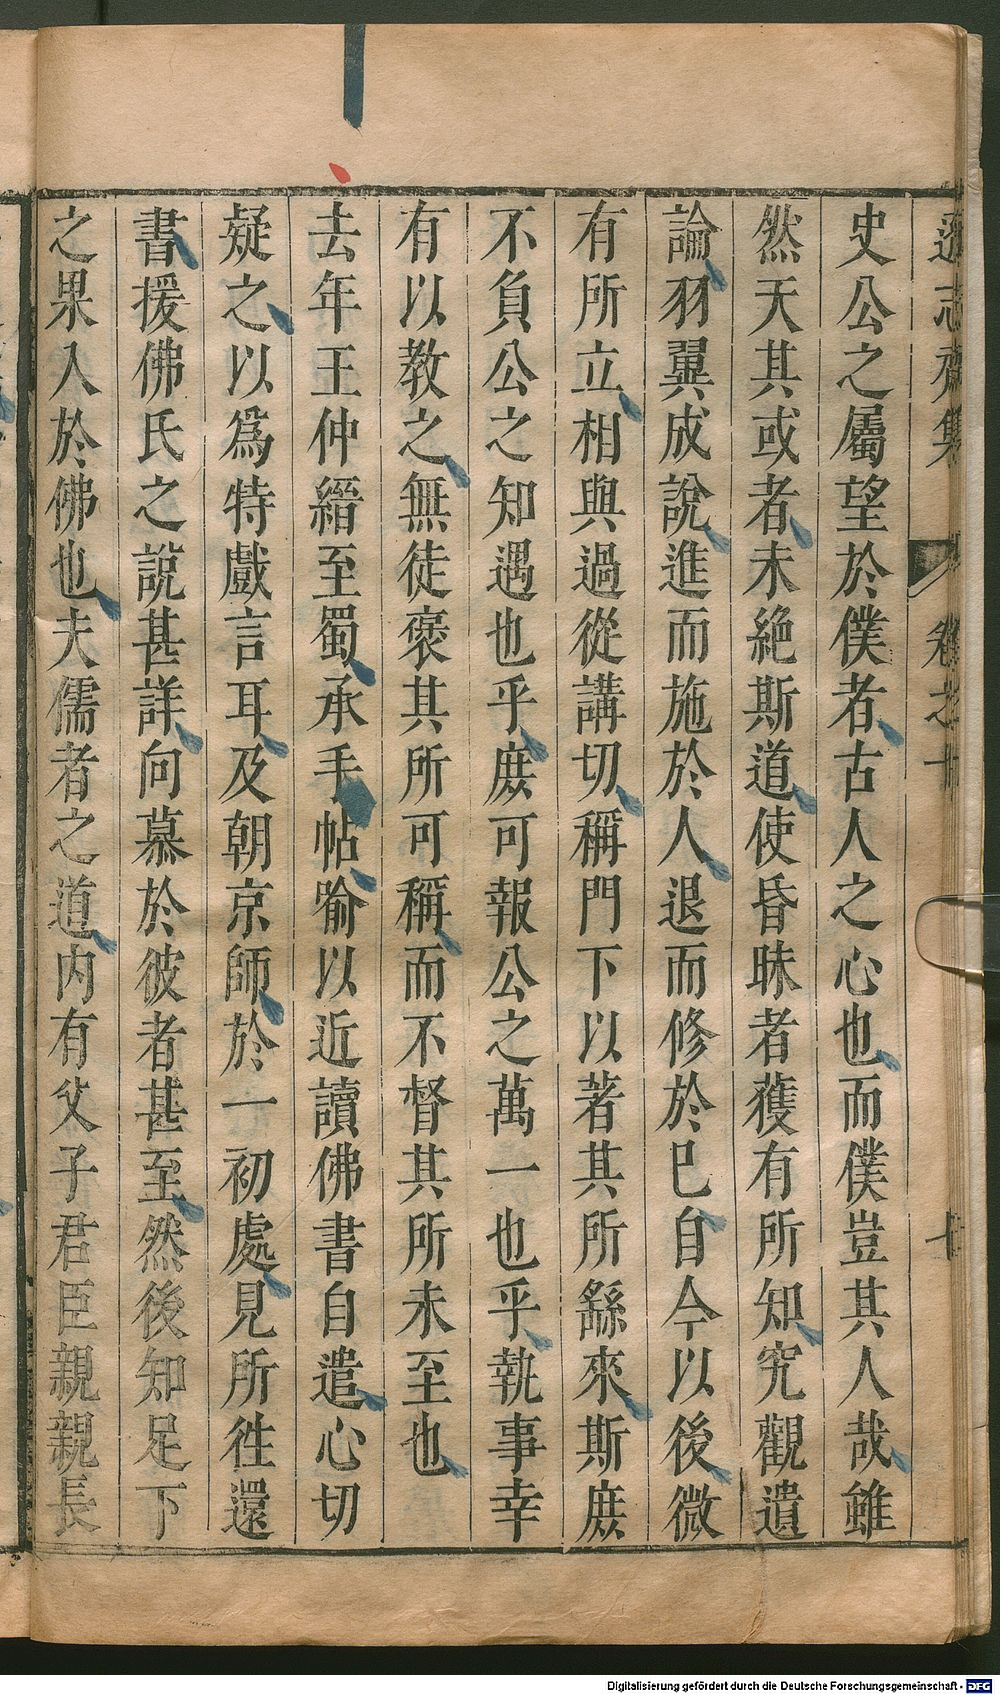 遜志齋集
卷之十
十
史公之屬望於僕者古人之心也而僕豈其人哉雖
然天其或者未絕斯道使昏昧者獲有所知究觀遺
論羽翼成說進而施於人退而修於已自今以後微
有所立相與過從講切稱門下以著其所繇來斯庶
不負公之知遇也乎庶可報公之萬一也乎執事幸
有以教之無徒褒其所可稱而不督其所未至也
去年王仲縉至蜀承手帖喻以近讀佛書自遣心切
疑之以為特戲言耳及朝京師於一初處見所徃還
書援佛氏之說甚詳向慕於彼者甚至然後知足下
之果入於佛也夫儒者之道内有父子君臣親親長
Digitalisierung gefördert durch die Deutsche Forschungsgemeinschaft - DFG